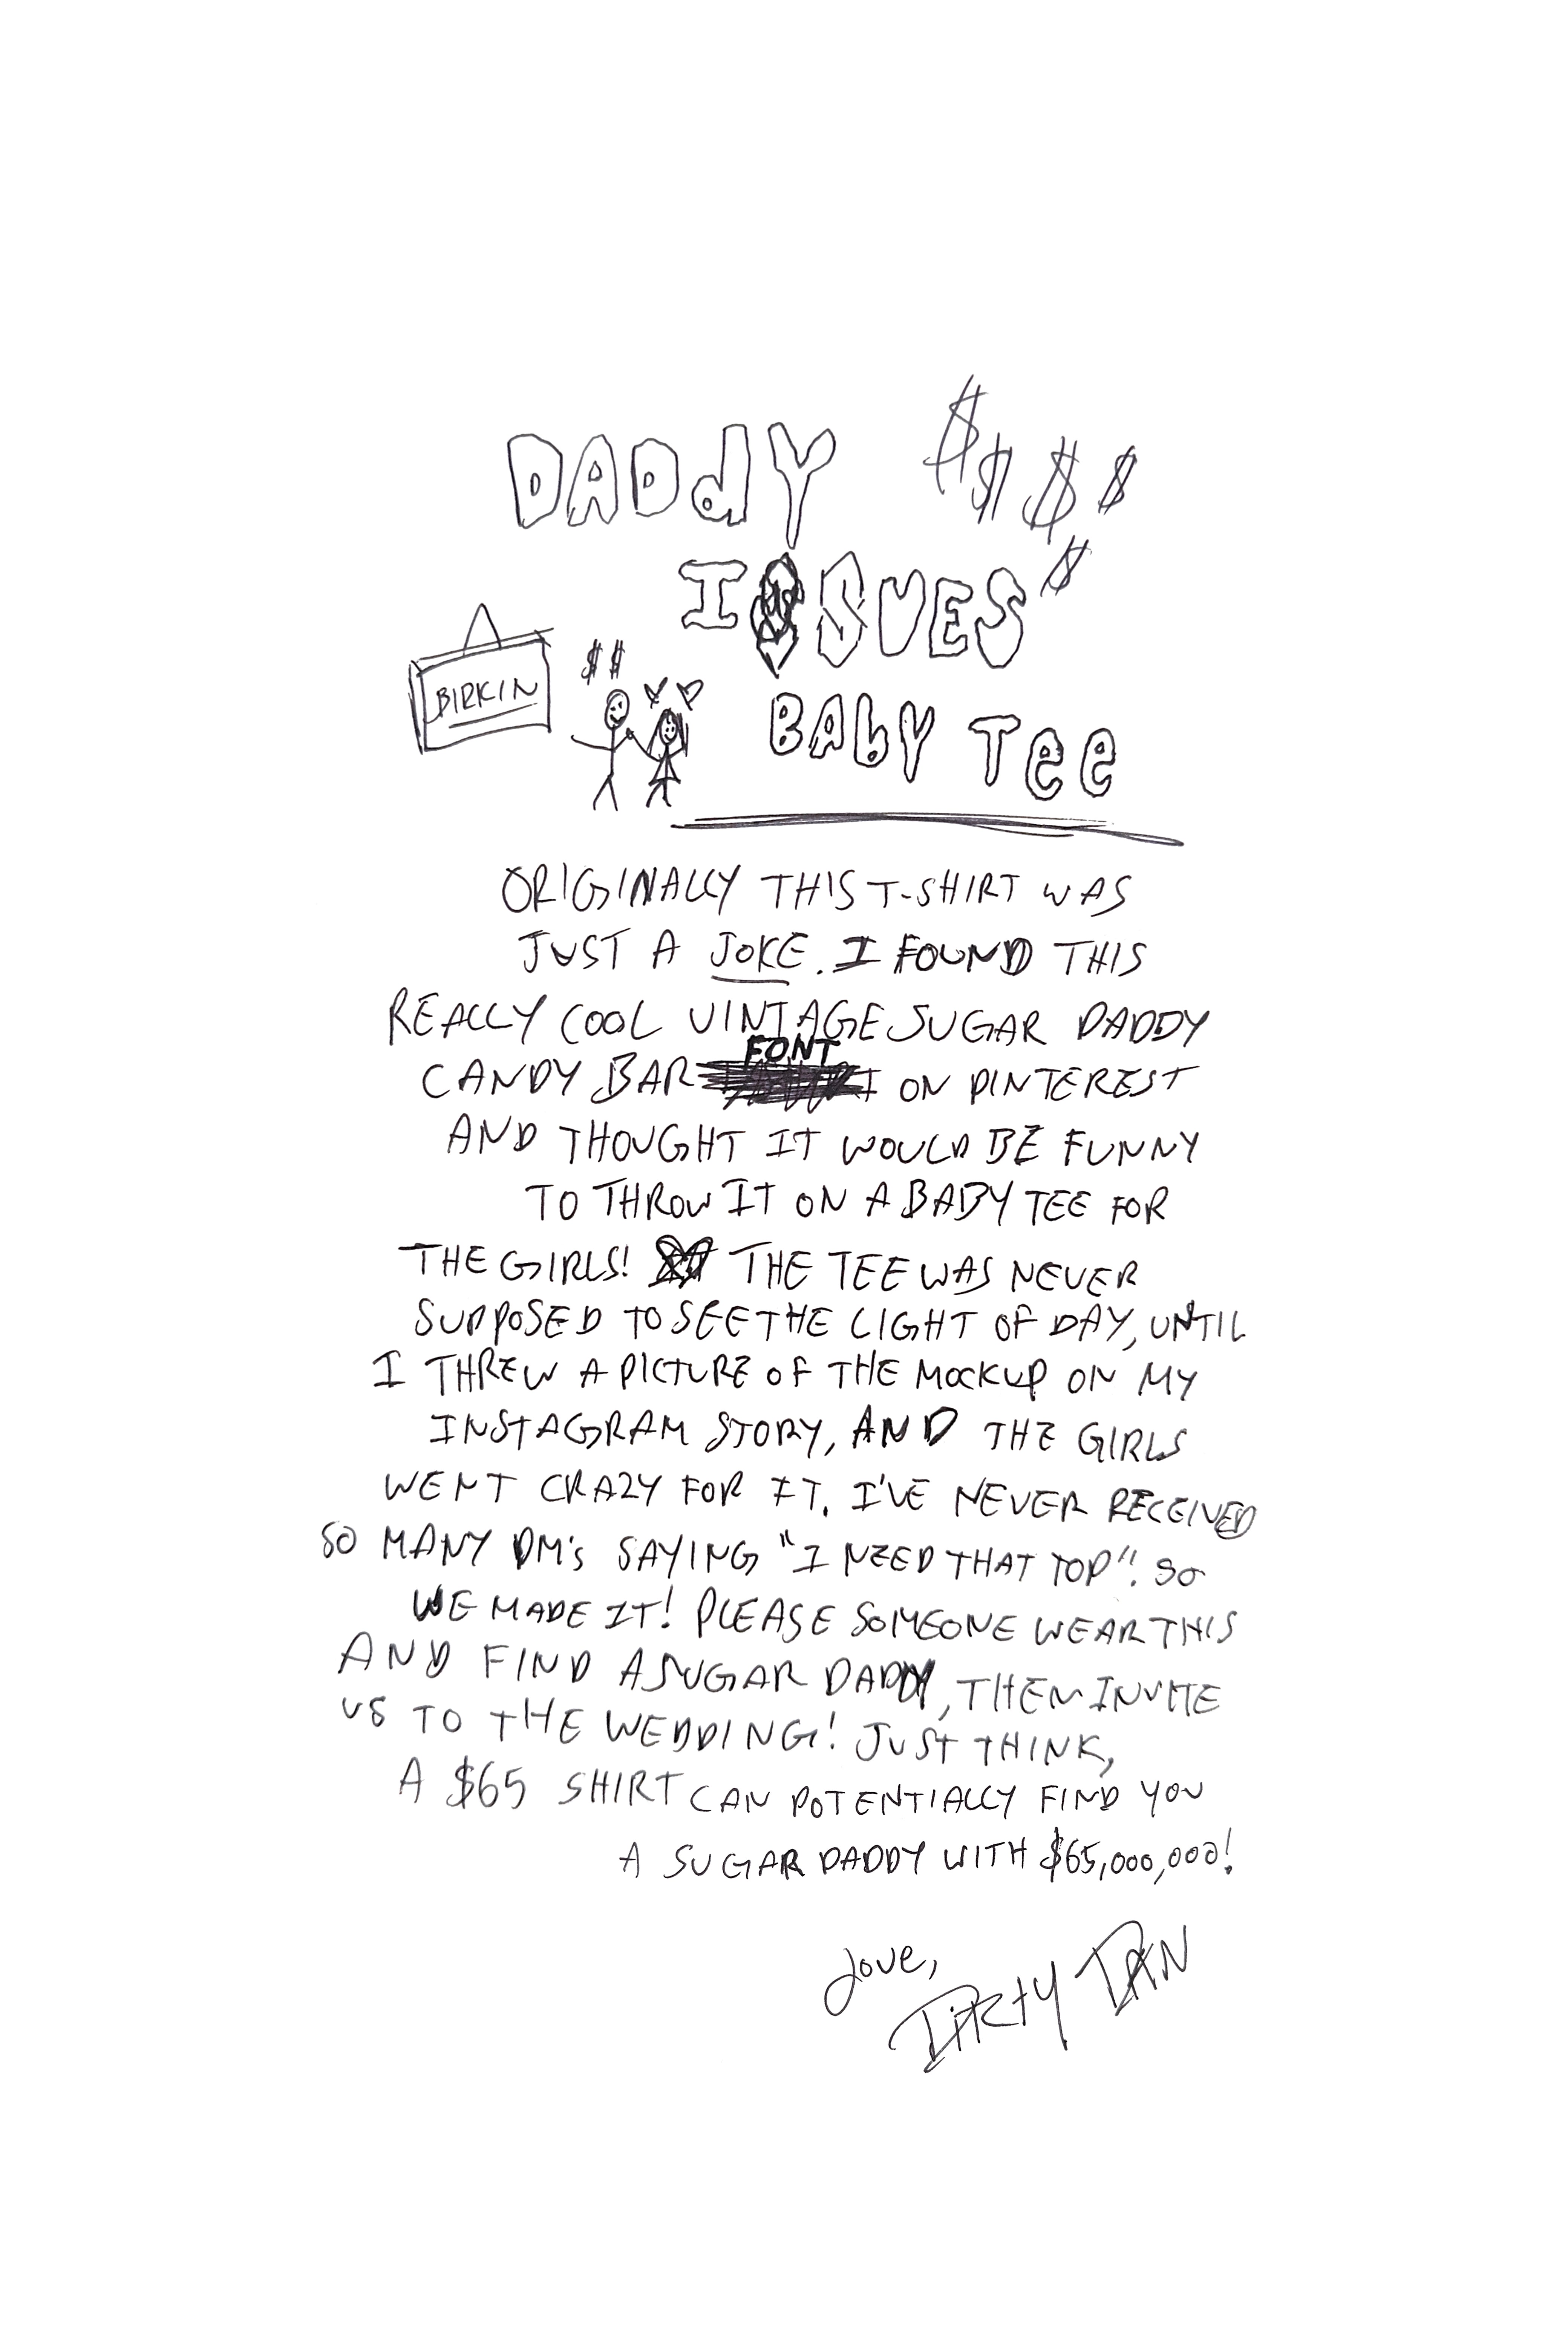 DADdY $ $ $ $
ISSUES $
BIRKIN
$$
BAbY Tee
ORIGINALLY THIS T-SHIRT WAS
JUST A JOKE. I FOUND THIS
REALLY COOL VINTAGE SUGAR DADDY
CANDY BAR FONT ON PINTEREST
AND THOUGHT IT WOULD BE FUNNY
TO THROW IT ON A BABY TEE FOR
THE GIRLS! THE TEE WAS NEVER
SUPPOSED TO SEE THE LIGHT OF DAY, UNTIL
I THREW A PICTURE OF THE MOCKUP ON MY
INSTAGRAM STORY, AND THE GIRLS
WENT CRAZY FOR IT. I'VE NEVER RECEIVED
SO MANY DM's SAYING "I NEED THAT TOP". SO
WE MADE IT! PLEASE SOMEONE WEAR THIS
AND FIND A SUGAR DADDY, THEN INVITE
US TO THE WEDDING! JUST THINK,
A $65 SHIRT CAN POTENTIALLY FIND YOU
A SUGAR DADDY WITH $65,000,000!
Love,
DiRtY DAN